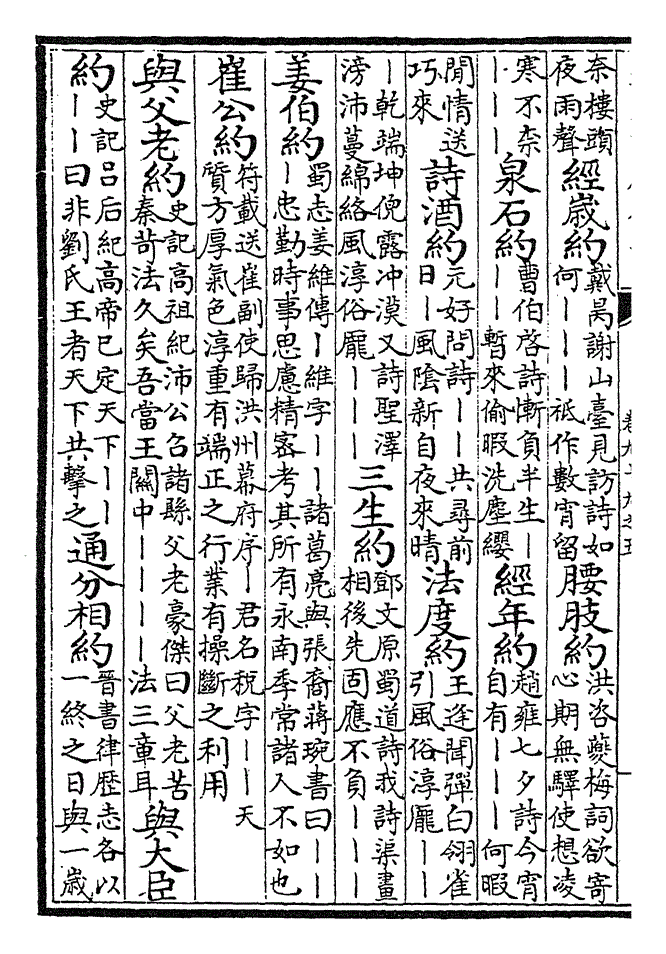 柰樓頭夜雨聲 經歲約 戴昺謝山臺見訪詩如何｜｜｜祗作數宵留 腰肢約 洪咨夔梅詞欲寄心期無驛使想凌
寒不柰｜｜｜ 泉石約 曹伯啓詩慚負半生｜｜｜暫來偷暇洗塵纓 經年約 趙雍七夕詩今宵自有｜｜｜何暇
閒情送巧來 詩酒約 元好問詩｜｜共尋前日｜風陰新自夜來晴 法度約 王逢聞彈白翎雀引風俗淳龐｜｜
｜乾端坤倪露冲漠又詩聖澤滂沛蔓綿絡風淳俗龐｜｜｜ 三生約 鄧文原蜀道詩我詩渠畫相後先固應不負｜｜｜
姜伯約 蜀志姜維傳｜維字｜｜諸葛亮與張裔蔣琬書曰｜｜｜忠勤時事思慮精密考其所有永南季常諸人不如也
崔公約 符載送崔副使歸洪州幕府序｜君名稅字｜｜天質方厚氣色淳重有端正之行業有操斷之利用
與父老約 史記高祖紀沛公召諸縣父老豪傑曰父老苦秦苛法久矣吾當王關中｜｜｜｜法三章耳 與大臣
約 史記呂后紀高帝已定天下｜｜｜｜曰非劉氏王者天下共擊之 通分相約 晉書律歷志各以一終之日與一歲